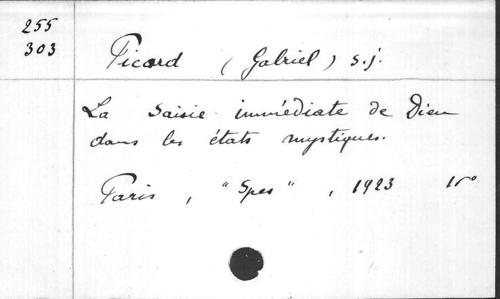 255
303
Picard (Gabriel) s.j.
La saisie immédiate de Dieu
dans les états mystiques.
Paris, "Spes", 1923 in-